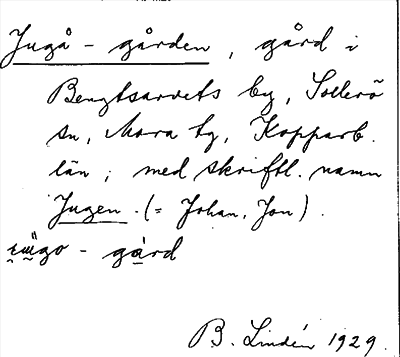 Jugå - gården, gård i
Bengtsarvets by, Sollerö
sn, Mora tg, Kopparb.
län; med skriftl. namn
Jugen. (= Johan, Jon).
- gård
B. Lindén 1929.